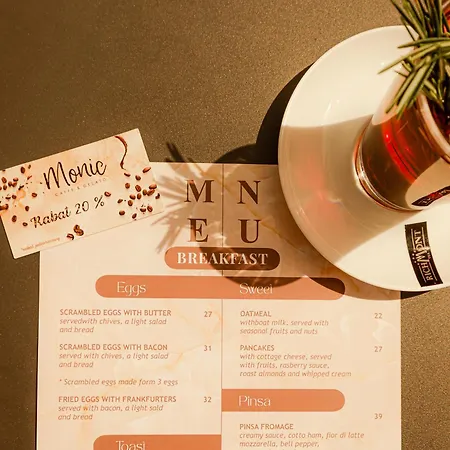 Monic
CAFFE & GELATO
Rabat 20 %
MENU
BREAKFAST
Eggs
SCRAMBLED EGGS WITH BUTTER 27
servedwith chives, a light salad
and bread
SCRAMBLED EGGS WITH BACON 31
served with chives, a light salad
and bread
* Scrambled eggs made form 3 eggs
FRIED EGGS WITH FRANKFURTERS 32
served with bacon, a light salad
and bread
Toast
Sweet
OATMEAL 22
withboat milk, served with
seasonal fruits and nuts
PANCAKES 27
with cottage cheese, served
with fruits, rasberry sauce,
roast almonds and whipped cream
Pinsa
39
PINSA FROMAGE
creamy sauce, cotto ham, fior di latte
mozzarella, bell pepper,
RICHMONT